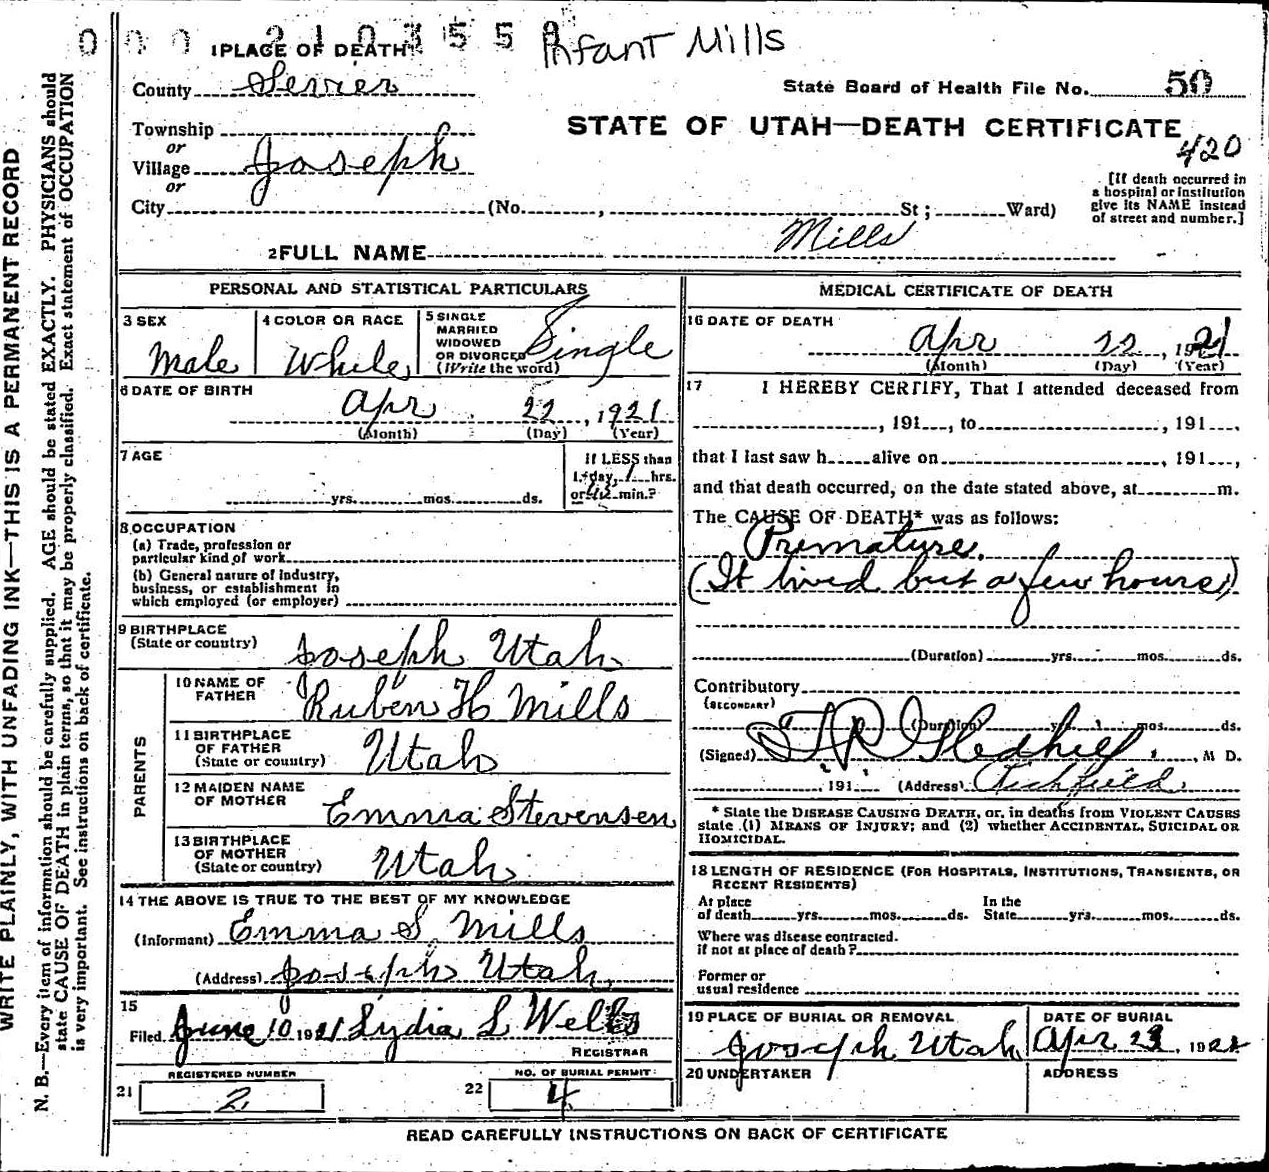 0 0 0 2 1 0 3 5 5 8
Infant Mills
1 PLACE OF DEATH
County Sevier
State Board of Health File No. 50
Township
or
Village Joseph
or
City (No. , St ; Ward)
STATE OF UTAH—DEATH CERTIFICATE
420
[If death occurred in
a hospital or institution
give its NAME instead
of street and number.]
2 FULL NAME Mills
PERSONAL AND STATISTICAL PARTICULARS
3 SEX
Male
4 COLOR OR RACE
White
5 SINGLE
MARRIED
WIDOWED
OR DIVORCED
(Write the word)
Single
6 DATE OF BIRTH
Apr 22, 1921
(Month) (Day) (Year)
7 AGE
yrs. mos. ds.
If LESS than
1 day, 1 hrs.
or min.?
8 OCCUPATION
(a) Trade, profession or
particular kind of work
(b) General nature of industry,
business, or establishment in
which employed (or employer)
9 BIRTHPLACE
(State or country)
Joseph Utah
PARENTS
10 NAME OF
FATHER
Ruben H Mills
11 BIRTHPLACE
OF FATHER
(State or country)
Utah
12 MAIDEN NAME
OF MOTHER
Emma Stevensen
13 BIRTHPLACE
OF MOTHER
(State or country)
Utah
14 THE ABOVE IS TRUE TO THE BEST OF MY KNOWLEDGE
(Informant) Emma S. Mills
(Address) Joseph Utah
15
Filed June 10 1921 Lydia L Wells
REGISTRAR
REGISTERED NUMBER
21 2
NO. OF BURIAL PERMIT:
22 4
MEDICAL CERTIFICATE OF DEATH
16 DATE OF DEATH
Apr 22, 1921
(Month) (Day) (Year)
17 I HEREBY CERTIFY, That I attended deceased from
, 191 , to , 191 ,
that I last saw h alive on , 191 ,
and that death occurred, on the date stated above, at m.
The CAUSE OF DEATH* was as follows:
Premature.
(It lived but a few hours)
(Duration) yrs. mos. ds.
Contributory
(SECONDARY)
(Duration) yrs. mos. ds.
(Signed) T R Gledhill, M D.
, 191 (Address) Richfield
* State the DISEASE CAUSING DEATH, or, in deaths from VIOLENT CAUSES
state (1) MEANS OF INJURY; and (2) whether ACCIDENTAL, SUICIDAL OR
HOMICIDAL.
18 LENGTH OF RESIDENCE (FOR HOSPITALS, INSTITUTIONS, TRANSIENTS, OR
RECENT RESIDENTS)
At place
of death yrs. mos. ds.
In the
State yrs. mos. ds.
Where was disease contracted.
if not at place of death?
Former or
usual residence
19 PLACE OF BURIAL OR REMOVAL
Joseph Utah
DATE OF BURIAL
Apr 23, 1921
20 UNDERTAKER
ADDRESS
READ CAREFULLY INSTRUCTIONS ON BACK OF CERTIFICATE
WRITE PLAINLY, WITH UNFADING INK—THIS IS A PERMANENT RECORD
N. B.—Every item of information should be carefully supplied. AGE should be stated EXACTLY. PHYSICIANS should
state CAUSE OF DEATH in plain terms, so that it may be properly classified. Exact statement of OCCUPATION
is very important. See instructions on back of certificate.